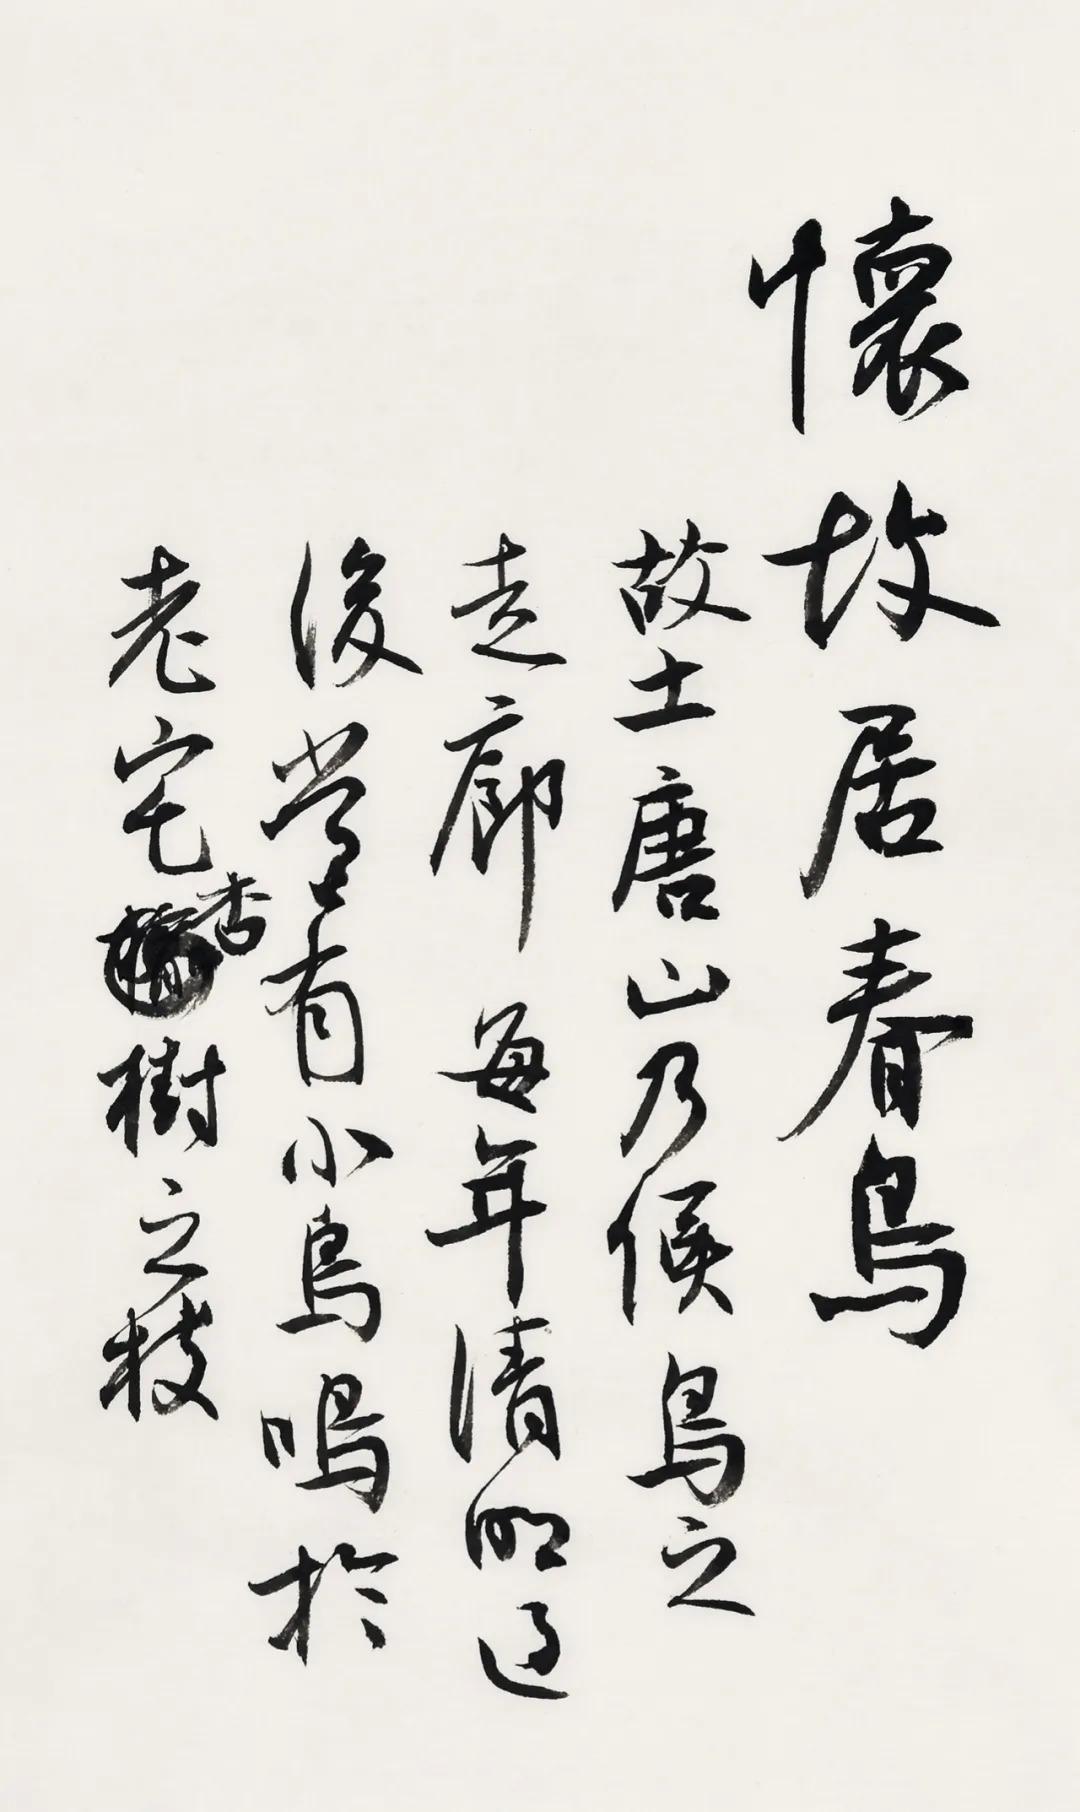 懷故居春鳥
故土唐山乃候鳥之
走廊每年清明過
後常有小鳥鳴於
老宅杏樹之枝